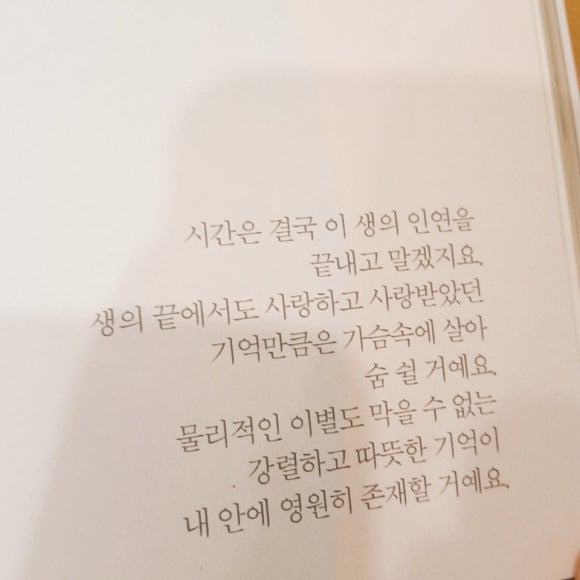 시간은 결국 이 생의 인연을
끝내고 말겠지요.
생의 끝에서도 사랑하고 사랑받았던
기억만큼은 가슴속에 살아
숨 쉴 거예요.
물리적인 이별도 막을 수 없는
강렬하고 따뜻한 기억이
내 안에 영원히 존재할 거예요.